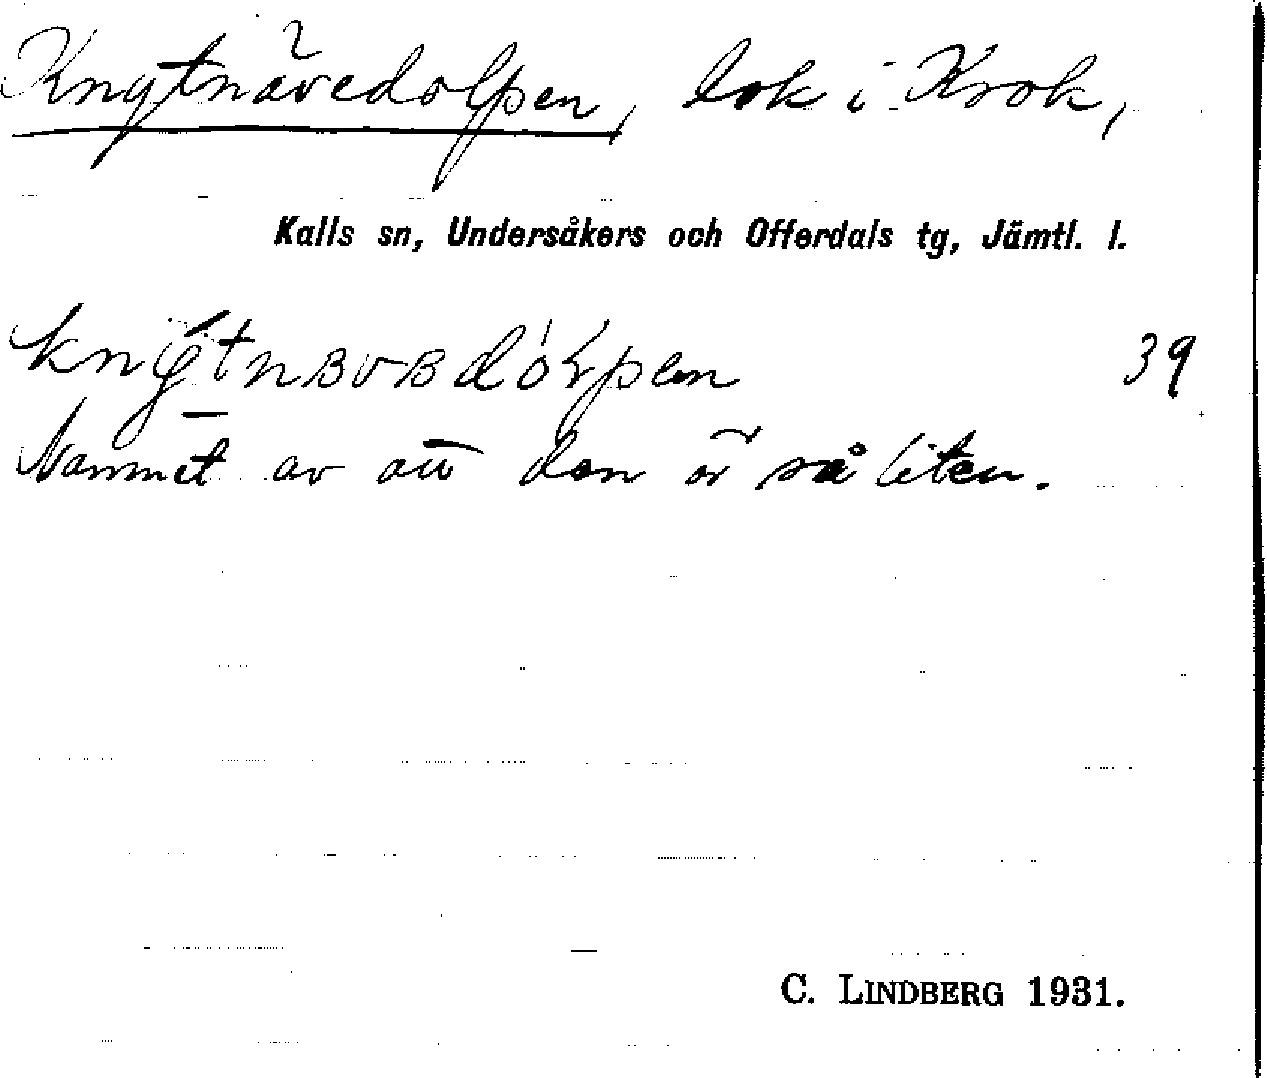 Knytnävedolpen, lok i Krok,
Kalls sn, Undersåkers och Offerdals tg, Jämtl. l.
39
Namnet av att den är så liten.
C. LINDBERG 1931.